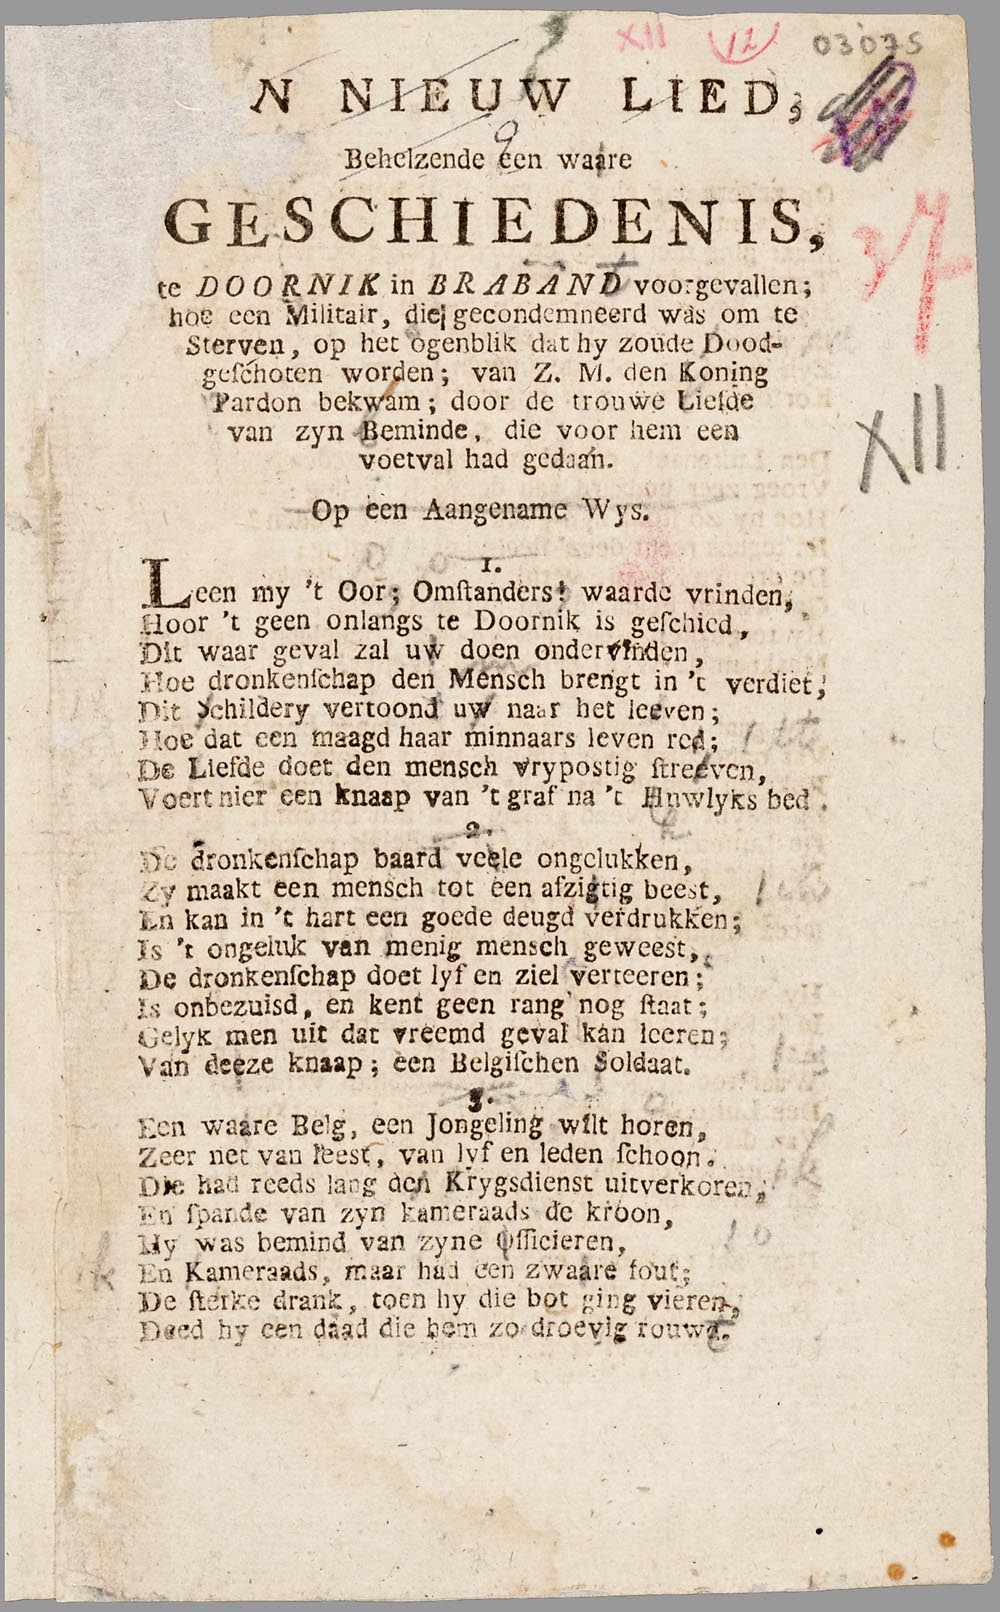 XII 12 03075
N NIEUW LIED,
Behelzende een waare
GESCHIEDENIS,
37
te DOORNIK in BRABAND voorgevallen;
hoe een Militair, die gecondemneerd was om te
Sterven, op het ogenblik dat hy zoude Dood-
geſchoten worden; van Z. M. den Koning
Pardon bekwam; door de trouwe Liefde
van zyn Beminde, die voor hem een
voetval had gedaan.
XII
Op een Aangename Wys.
1.
Leen my 't Oor; Omſtanders! waarde vrinden,
Hoor 't geen onlangs te Doornik is geſchied,
Dit waar geval zal uw doen ondervinden,
Hoe dronkenſchap den Mensch brengt in 't verdiet,
Dit Schildery vertoond uw naar het leeven;
Hoe dat een maagd haar minnaars leven red;
De Liefde doet den mensch vrypostig ſtreeven,
Voert hier een knaap van 't graf na 't Huwlyks bed.
2.
De dronkenſchap baard veele ongelukken,
Zy maakt een mensch tot een afzigtig beest,
En kan in 't hart een goede deugd verdrukken;
Is 't ongeluk van menig mensch geweest,
De dronkenſchap doet lyf en ziel verteeren;
Is onbezuisd, en kent geen rang nog ſtaat;
Gelyk men uit dat vreemd geval kan leeren;
Van deeze knaap; een Belgiſchen Soldaat.
3.
Een waare Belg, een Jongeling wilt horen,
Zeer net van leest, van lyf en leden ſchoon.
Die had reeds lang den Krygsdienst uitverkoren,
En ſpande van zyn kameraads de kroon,
Hy was bemind van zyne Officieren,
En Kameraads, maar had een zwaare fout;
De ſterke drank, toen hy die bot ging vieren,
Deed hy een daad die hem zo droevig rouwt.